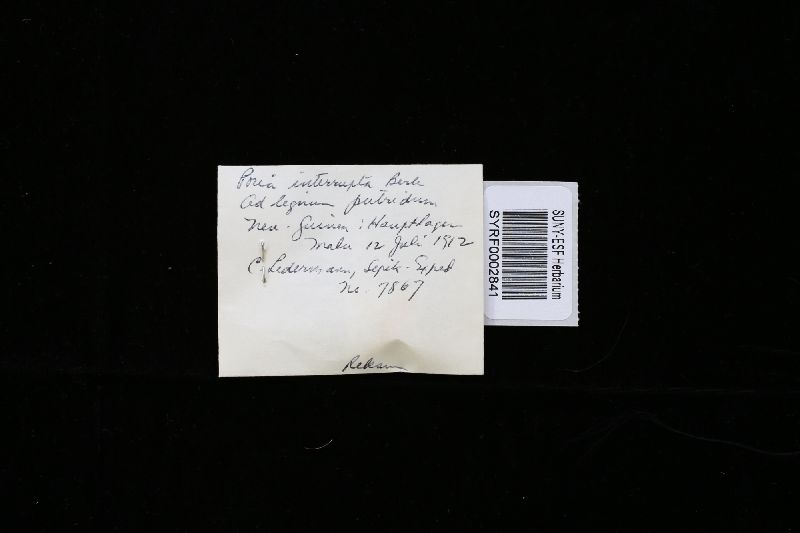 Poria interrupta Berk
Ad lignum putridum
Neu-Guinea: Hauptlager
Malu 12 Juli 1912
C. Ledermann, Sepik-Exped
No. 7867
SUNY-ESF Herbarium
SYRF0002841